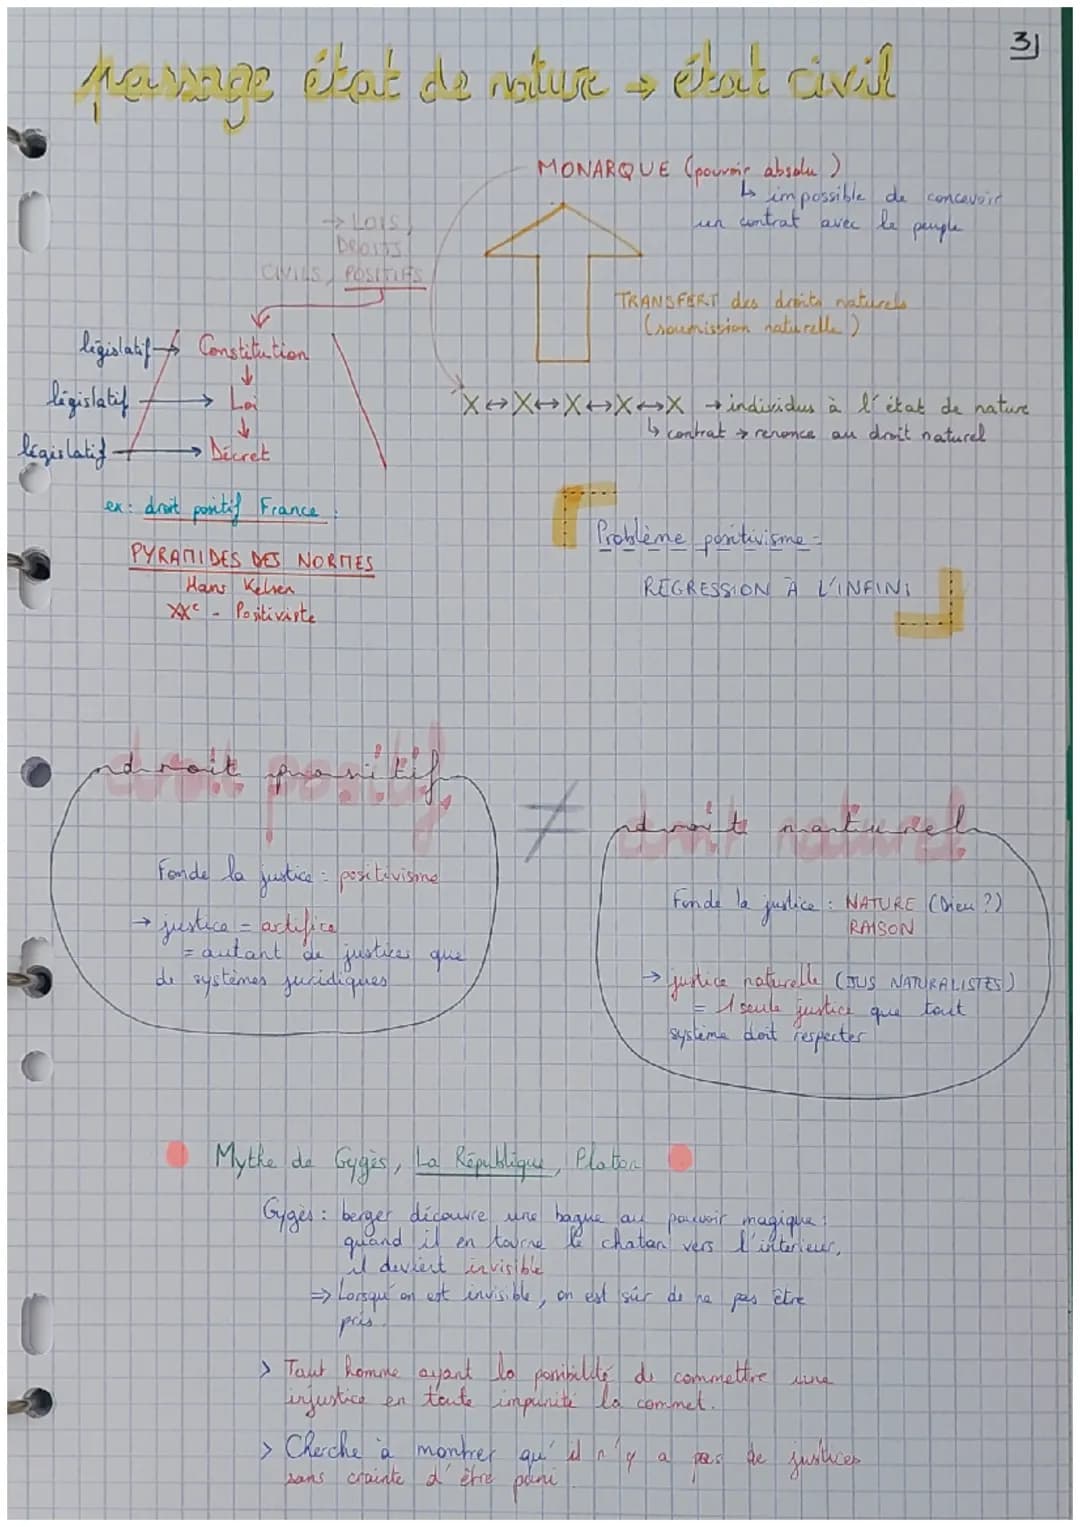 3)
passage état de nature → état civil
MONARQUE (pouvoir absolu)
↳ impossible de concevoir
un contrat avec le peuple
→ LOIS,
DROITS
CIVILS, POSITIFS
TRANSFERT des droits naturels
(soumission naturelle)
législatif → Constitution
↓
législatif → Loi
↓
législatif → Décret
X ↔ X ↔ X ↔ X ↔ X → individus à l'état de nature
↳ contrat → renonce au droit naturel
ex : droit positif France :
PYRAMIDES DES NORMES
Hans Kelsen
XXe - Positiviste
Problème positivisme =
RÉGRESSION À L'INFINI
droit positif
≠
droit naturel
Fonde la justice : positivisme
→ justice = artifice
= autant de justices que
de systèmes juridiques
Fonde la justice : NATURE (Dieu ?)
RAISON
→ justice naturelle (JUS NATURALISTES)
= 1 seule justice que tout
système doit respecter
Mythe de Gygès, La République, Platon
Gygès : berger découvre une bague au pouvoir magique :
quand il en tourne le chaton vers l'intérieur,
il devient invisible
⇒ Lorsqu'on est invisible, on est sûr de ne pas être
pris.
> Tout homme ayant la possibilité de commettre une
injustice en toute impunité la commet.
> Cherche à montrer qu'il n'y a pas de justices
sans crainte d'être puni.